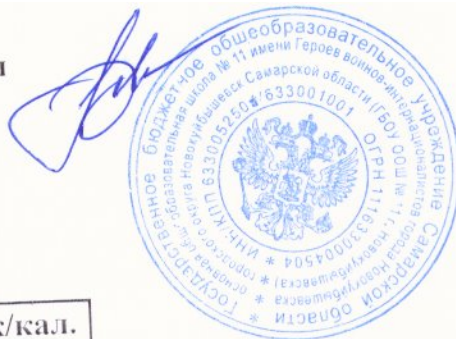 Государственное бюджетное общеобразовательное учреждение Самарской области *
основная общеобразовательная школа № 11 имени Героев воинов-интернационалистов города Новокуйбышевска
городского округа Новокуйбышевск Самарской области (ГБОУ ООШ № 11 г. Новокуйбышевска) *
* ИНН/КПП 6330052504/633001001 ОГРН 1116330004504
к/кал.